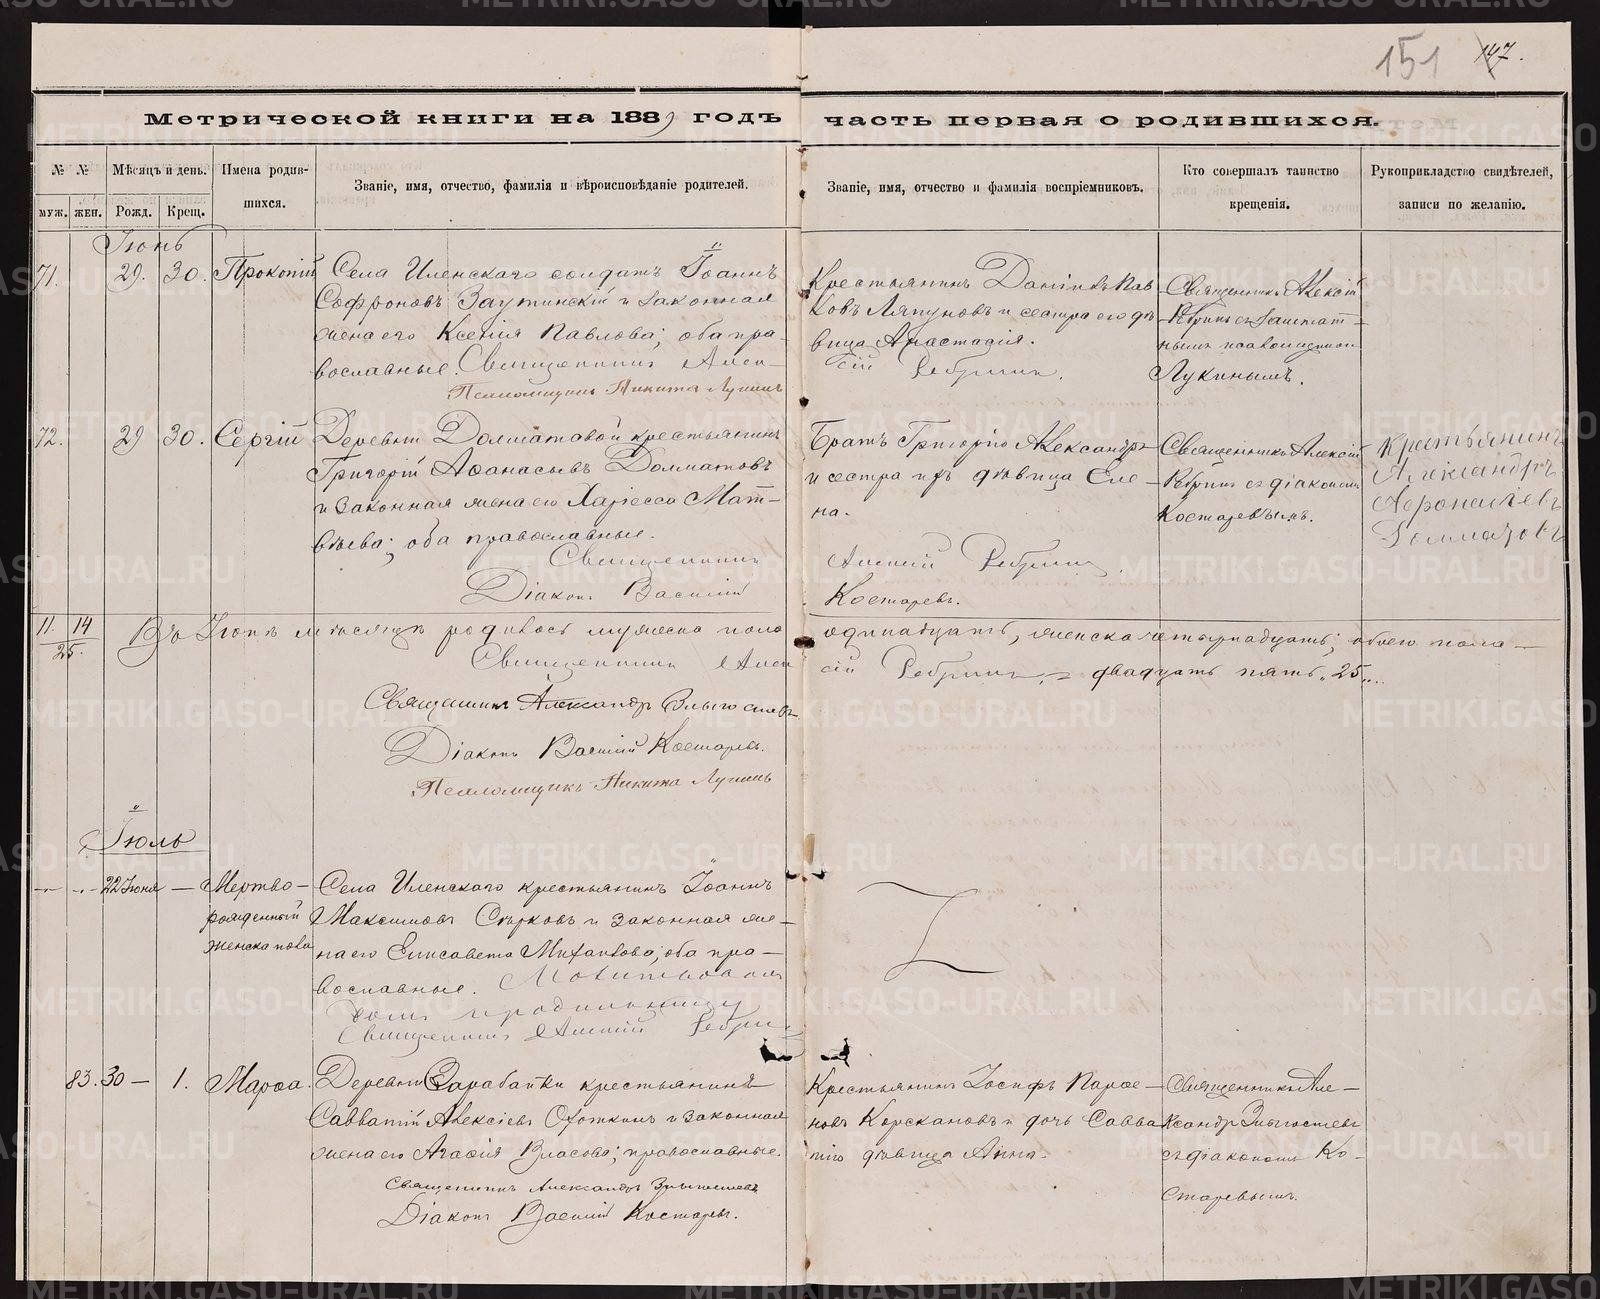 151 147.
Метрической книги на 1889 годъ часть первая о родившихся.
№ №
Мѣсяцъ и день.
Имена родив-
шихся.
муж. жен. Рожд. Крещ.
Званіе, имя, отчество, фамилія и вѣроисповѣданіе родителей.
Званіе, имя, отчество и фамилія воспріемниковъ.
Кто совершалъ таинство
крещенія.
Рукоприкладство свидѣтелей,
записи по желанію.
Іюнь
71. 29. 30. Прокопій
Села Иленскаго солдатъ Іоаннъ
Софроновъ и законная
жена его Ксенія Павлова; оба пра-
вославные. Священникъ Алек-
Псаломщикъ Никита Лукинъ
Крестьянинъ Даніилъ Пав
ловъ Ляпуновъ и сестра его дѣ
вица Анастасія.
сій Ребринъ.
Священникъ Алексій
Ребринъ съ заштат-
нымъ псаломщикомъ
Лукинымъ.
72. 29 30. Сергій
Деревни Долматовой крестьянинъ
Григорій Аѳанасьевъ Долматовъ
и законная жена его Мат-
вѣева; оба православные.
Священникъ
Діаконъ Василій
Братъ Григорію Александръ
и сестра ихъ дѣвица Еле-
на.
Алексій Ребринъ.
Костаревъ.
Священникъ Алексій
Ребринъ съ діакономъ
Костаревымъ.
Крестьянинъ
Александръ
11. 14
25.
Въ Іюнѣ мѣсяцѣ родилось мужеска пола одинадцать, женска четырнадцать; обоего пола—
Священникъ Алексій Ребринъ. двадцать пять „25„.
Священникъ Александръ
Діаконъ Василій Костаревъ.
Псаломщикъ Никита Лукинъ
Іюль
22 Іюня — Мертво-
рожденный
женска пола
Села Иленскаго крестьянинъ Іоаннъ
Максимовъ Сѣрковъ и законная же-
на его Елисавета Михайлова; оба пра-
вославные.
Священникъ Алексій Ребринъ
83. 30 — 1. Марѳа.
Деревни крестьянинъ
Савватій Алексіевъ Охоткинъ и законная
жена его Агаѳія Власова; православные.
Священникъ Александръ
Діаконъ Василій Костаревъ.
Крестьянинъ Іосифъ Парѳе-
новъ и дочь Савва
тію дѣвица Анна.
Священникъ Але-
ксандръ
съ діакономъ Ко-
старевымъ.
METRIKI.GASO-URAL.RU